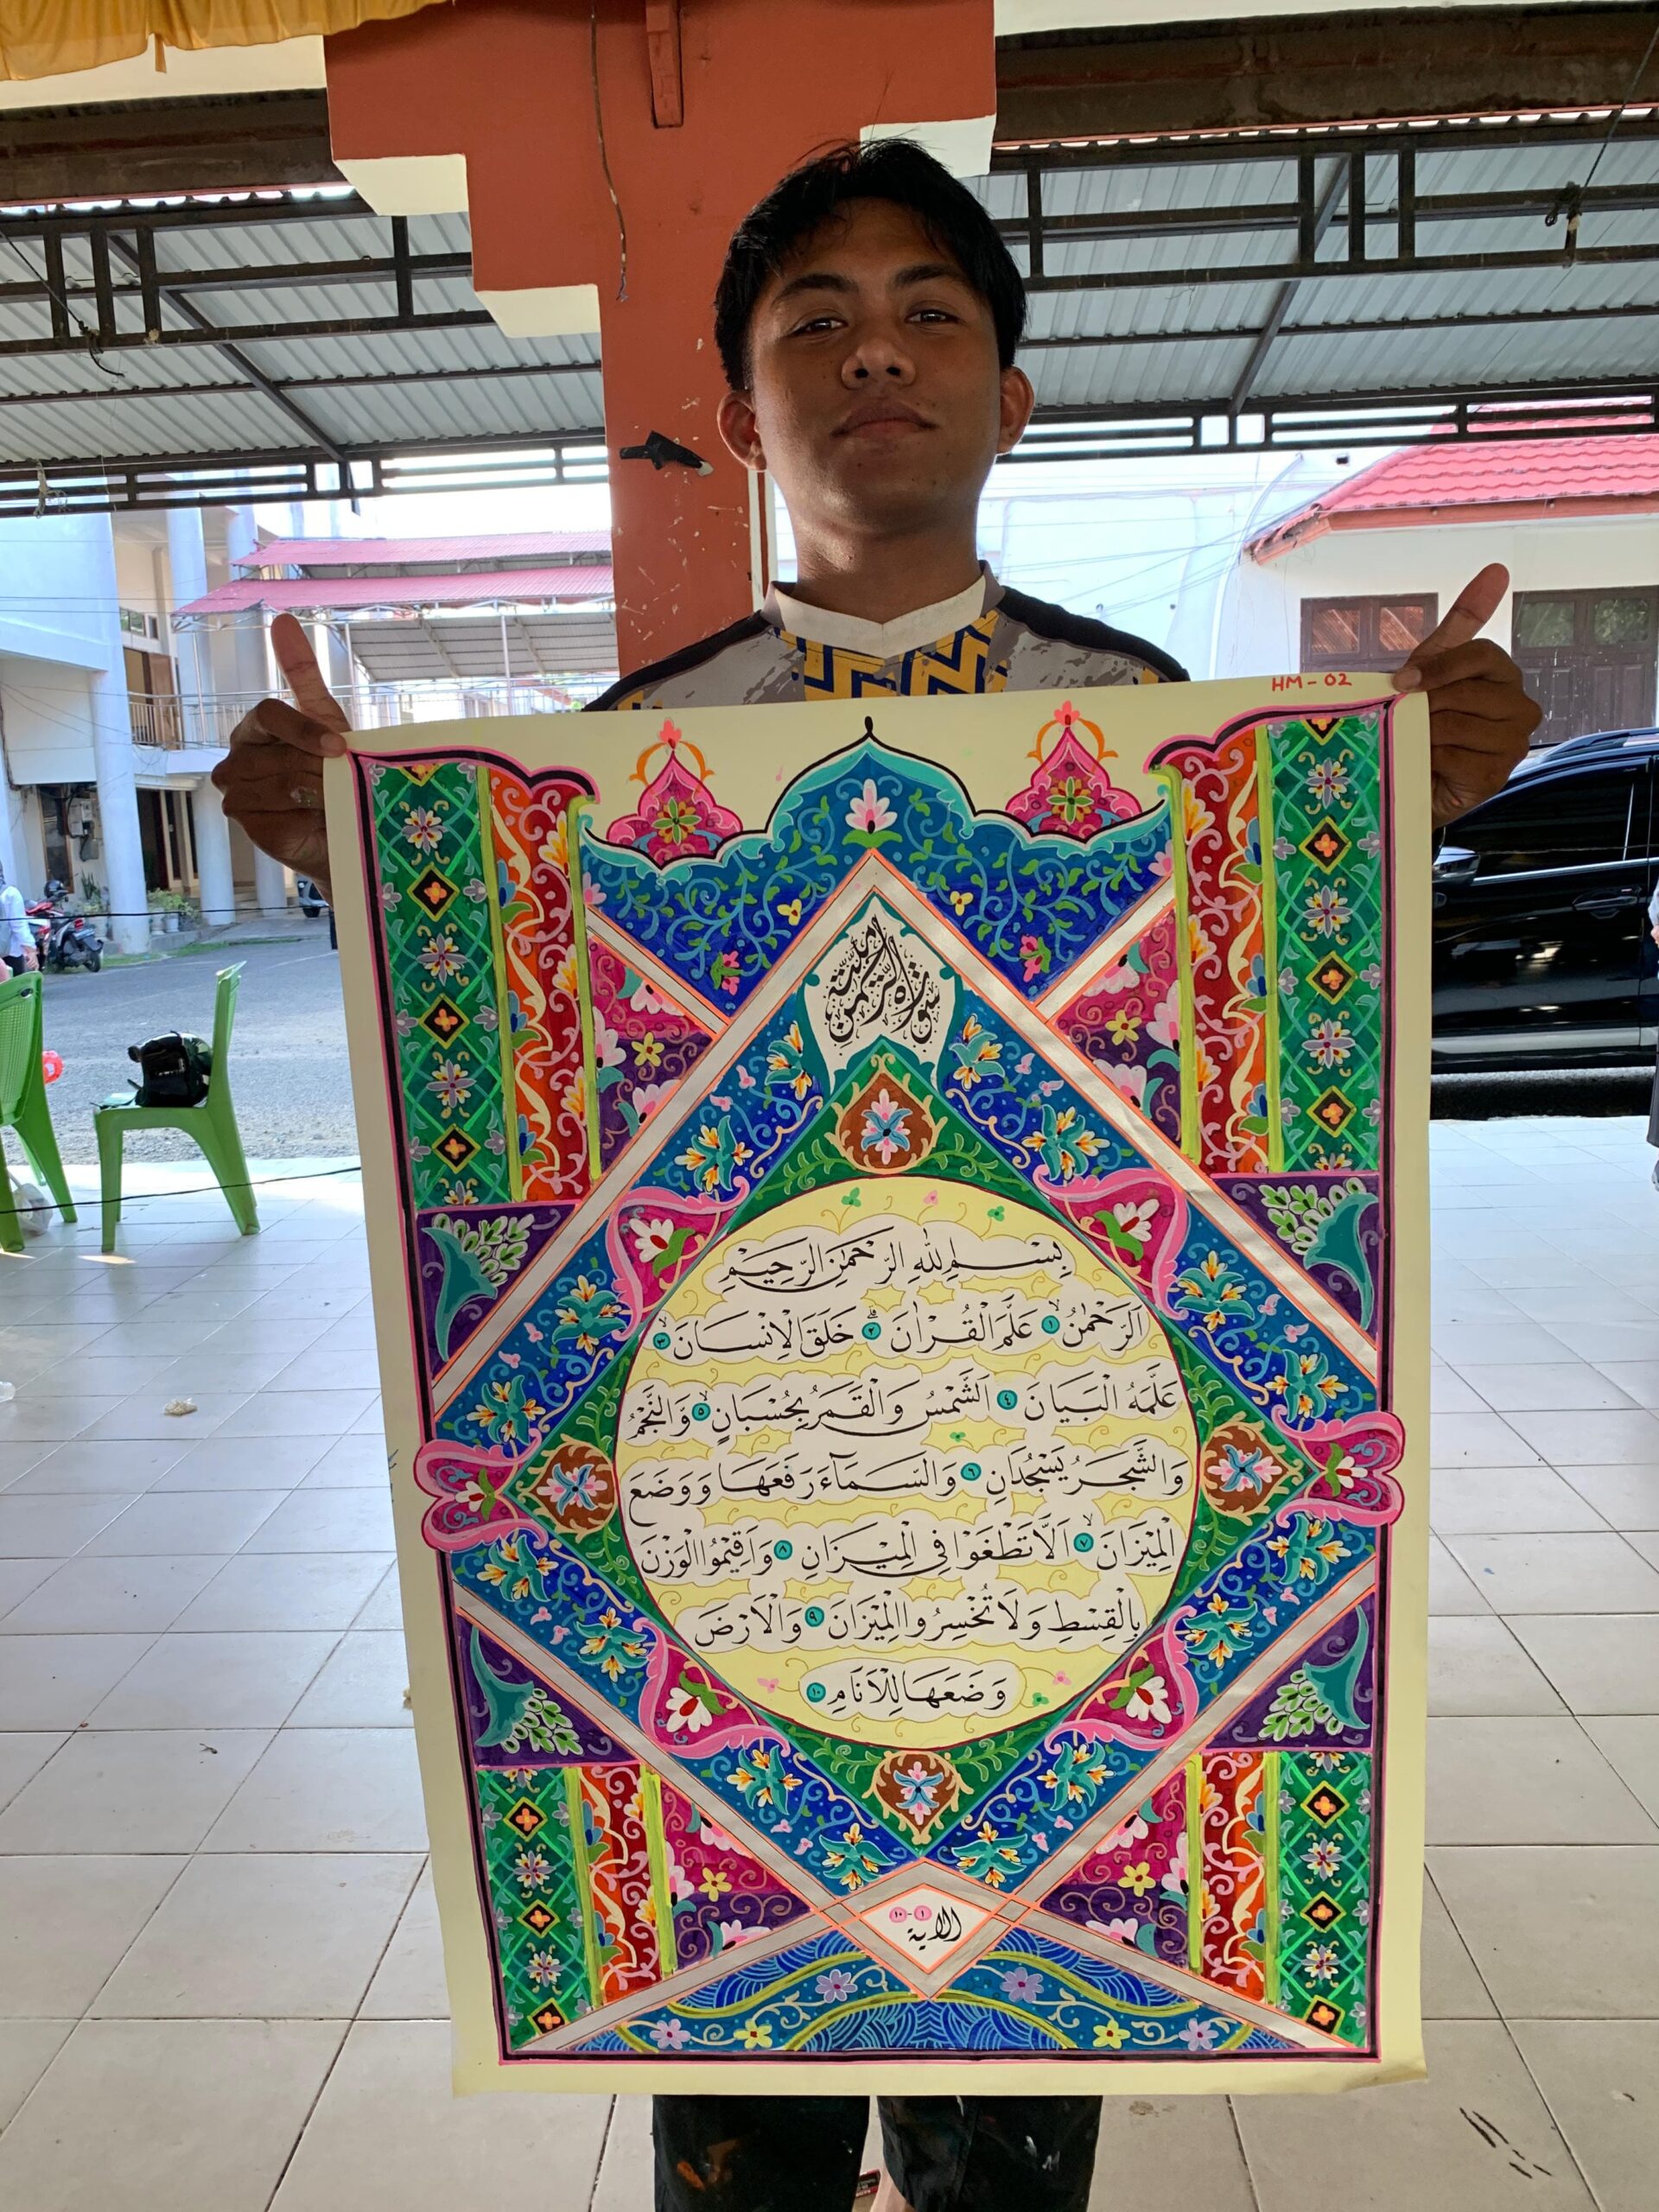 HM - 02
سُوْرَةُ الرَّحْمٰنِ
بِسْــمِ اللهِ الرَّحْمٰنِ الرَّحِيْمِ
اَلرَّحْمٰنُ ۙ ١ عَلَّمَ الْقُرْاٰنَ ۗ ٢ خَلَقَ الْاِنْسَانَ ۙ ٣
عَلَّمَهُ الْبَيَانَ ٤ اَلشَّمْسُ وَالْقَمَرُ بِحُسْبَانٍ ۙ ٥ وَالنَّجْمُ
وَالشَّجَرُ يَسْجُدَانِ ٦ وَالسَّمَآءَ رَفَعَهَا وَوَضَعَ
الْمِيْزَانَ ۙ ٧ اَلَّا تَطْغَوْا فِى الْمِيْزَانِ ٨ وَاَقِيْمُوا الْوَزْنَ
بِالْقِسْطِ وَلَا تُخْسِرُوا الْمِيْزَانَ ٩ وَالْاَرْضَ
وَضَعَهَا لِلْاَنَامِ ١٠
الاية ١ - ١٠